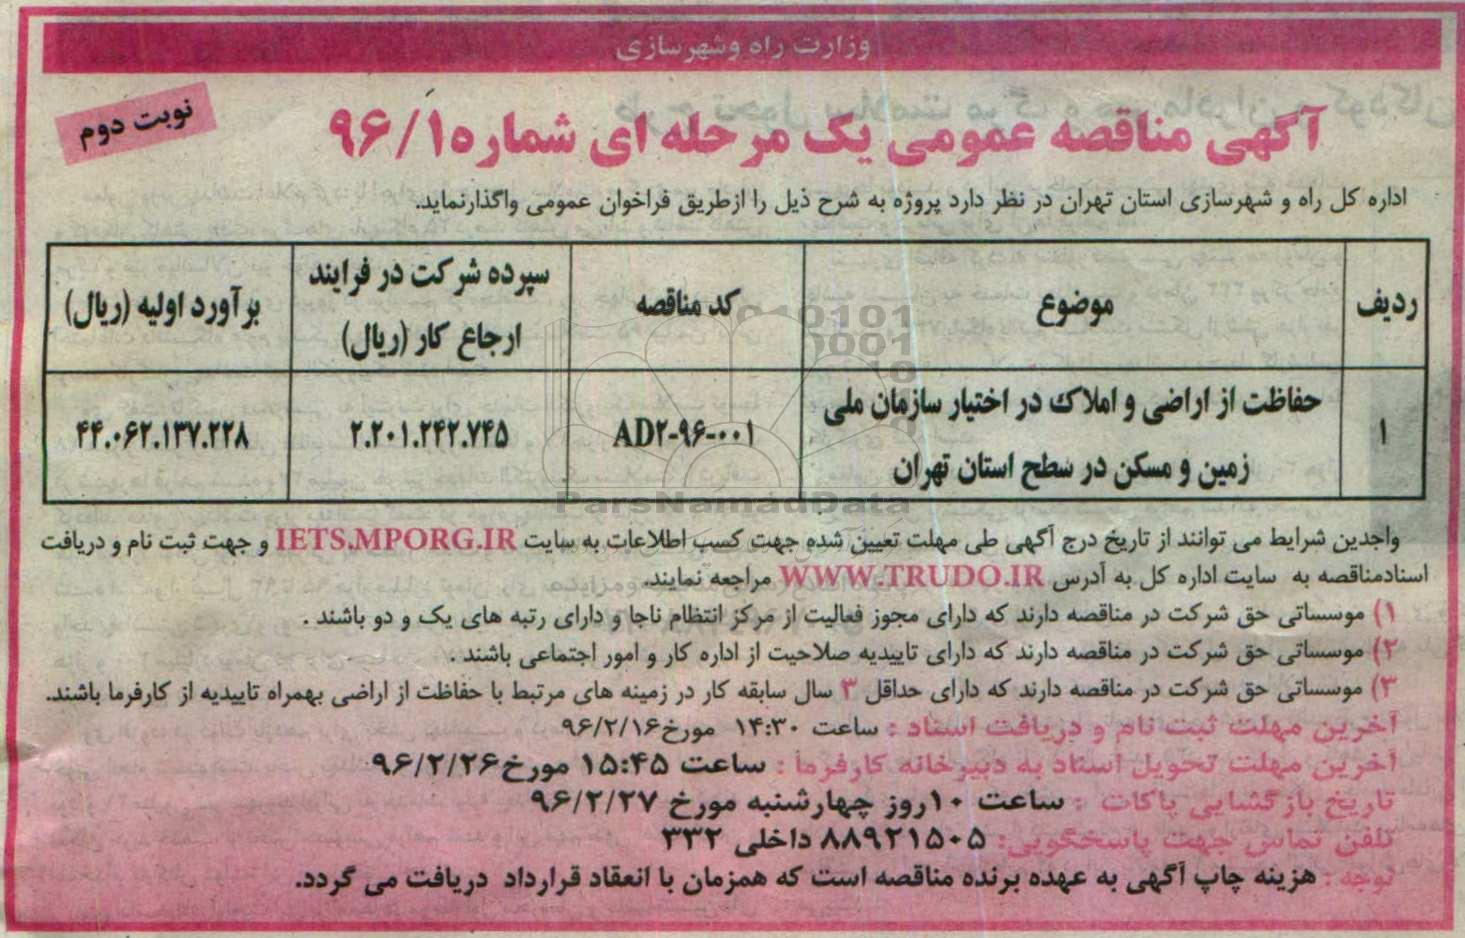 وزارت راه وشهرسازی
نوبت دوم
آگهی مناقصه عمومی یک مرحله ای شماره ۹۶/۱
اداره کل راه و شهرسازی استان تهران در نظر دارد پروژه به شرح ذیل را ازطریق فراخوان عمومی واگذارنماید.
ردیف
موضوع
کد مناقصه
سپرده شرکت در فرایند
ارجاع کار (ریال)
برآورد اولیه (ریال)
۱
حفاظت از اراضی و املاک در اختیار سازمان ملی
زمین و مسکن در سطح استان تهران
AD۲-۹۶-۰۰۱
۲.۲۰۱.۲۴۲.۷۴۵
۴۴.۰۶۲.۱۳۷.۲۲۸
ParsNamadData
واجدین شرایط می توانند از تاریخ درج آگهی طی مهلت تعیین شده جهت کسب اطلاعات به سایت IETS.MPORG.IR و جهت ثبت نام و دریافت
اسنادمناقصه به سایت اداره کل به آدرس WWW.TRUDO.IR مراجعه نمایند.
۱) موسساتی حق شرکت در مناقصه دارند که دارای مجوز فعالیت از مرکز انتظام ناجا و دارای رتبه های یک و دو باشند .
۲) موسساتی حق شرکت در مناقصه دارند که دارای تاییدیه صلاحیت از اداره کار و امور اجتماعی باشند .
۳) موسساتی حق شرکت در مناقصه دارند که دارای حداقل ۳ سال سابقه کار در زمینه های مرتبط با حفاظت از اراضی بهمراه تاییدیه از کارفرما باشند.
آخرین مهلت ثبت نام و دریافت اسناد : ساعت ۱۴:۳۰ مورخ ۹۶/۲/۱۶
آخرین مهلت تحویل اسناد به دبیرخانه کارفرما : ساعت ۱۵:۴۵ مورخ ۹۶/۲/۲۶
تاریخ بازگشایی پاکات : ساعت ۱۰ روز چهارشنبه مورخ ۹۶/۲/۲۷
تلفن تماس جهت پاسخگویی: ۸۸۹۲۱۵۰۵ داخلی ۳۳۲
توجه : هزینه چاپ آگهی به عهده برنده مناقصه است که همزمان با انعقاد قرارداد دریافت می گردد.